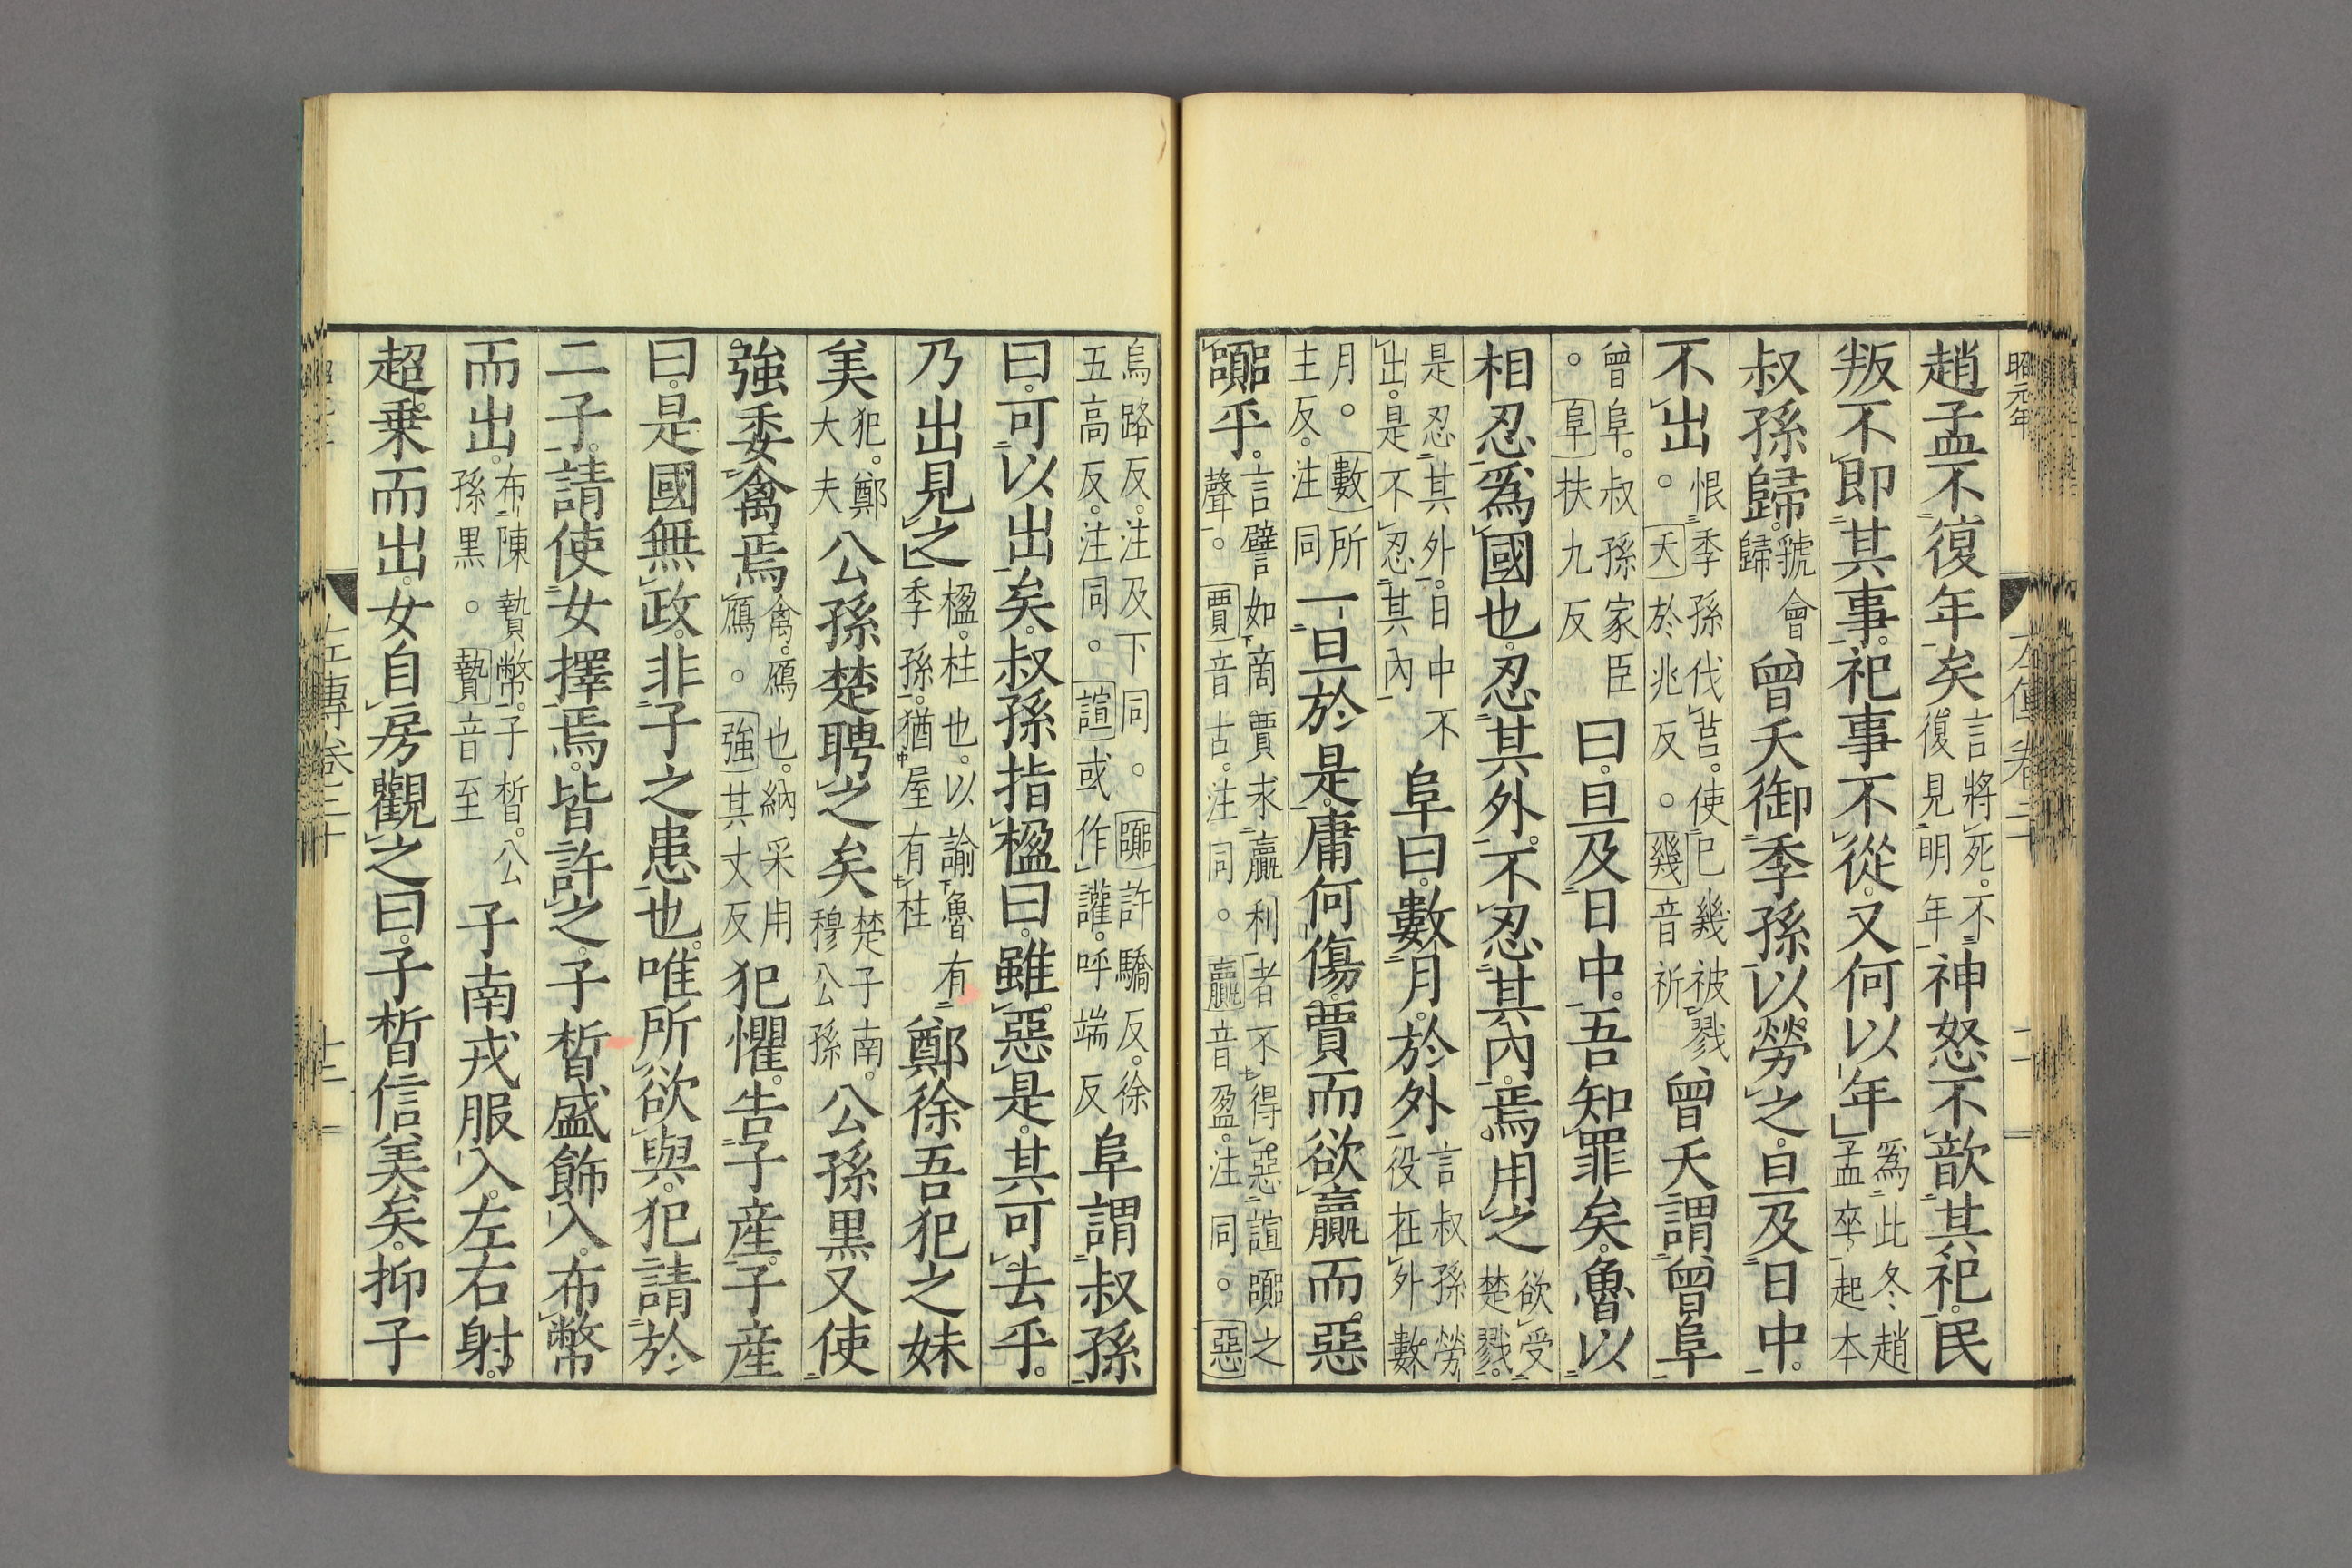 昭元年
趙孟不復年矣言將死不復見明年神怒不歆其祀民
叛不即其事祀事不從又何以年爲此冬趙孟卒起本
叔孫歸虢會歸曾夭御季孫以勞之旦及日中
不出恨季孫伐莒使已幾被戮。夭於兆反。幾音祈曾夭謂曾阜
曾阜叔孫家臣。阜扶九反曰旦及日中吾知罪矣魯以
相忍爲國也忍其外不忍其內焉用之欲受楚戮
是忍其外日中不出是不忍其內阜曰數月於外言叔孫勞役在外數
月。數所主反注同一旦於是庸何傷賈而欲贏而惡
嚻乎言譬如商賈求贏利者不得惡諠嚻之聲。賈音古注同。贏音盈注同。惡
烏路反注及下同。嚻許驕反徐五高反注同。諠或作讙呼端反阜謂叔孫
曰可以出矣叔孫指楹曰雖惡是其可去乎
乃出見之楹柱也以諭魯有季孫猶屋有柱鄭徐吾犯之妹
美犯鄭大夫公孫楚聘之矣楚子南穆公孫公孫黑又使
強委禽焉禽鴈也納采用鴈。強其丈反犯懼告子產子產
曰是國無政非子之患也唯所欲與犯請於
二子請使女擇焉皆許之子晳盛飾入布幣
而出布陳贄幣子晳公孫黑。贄音至子南戎服入左右射
超乗而出女自房觀之曰子晳信美矣抑子
左專卷二十